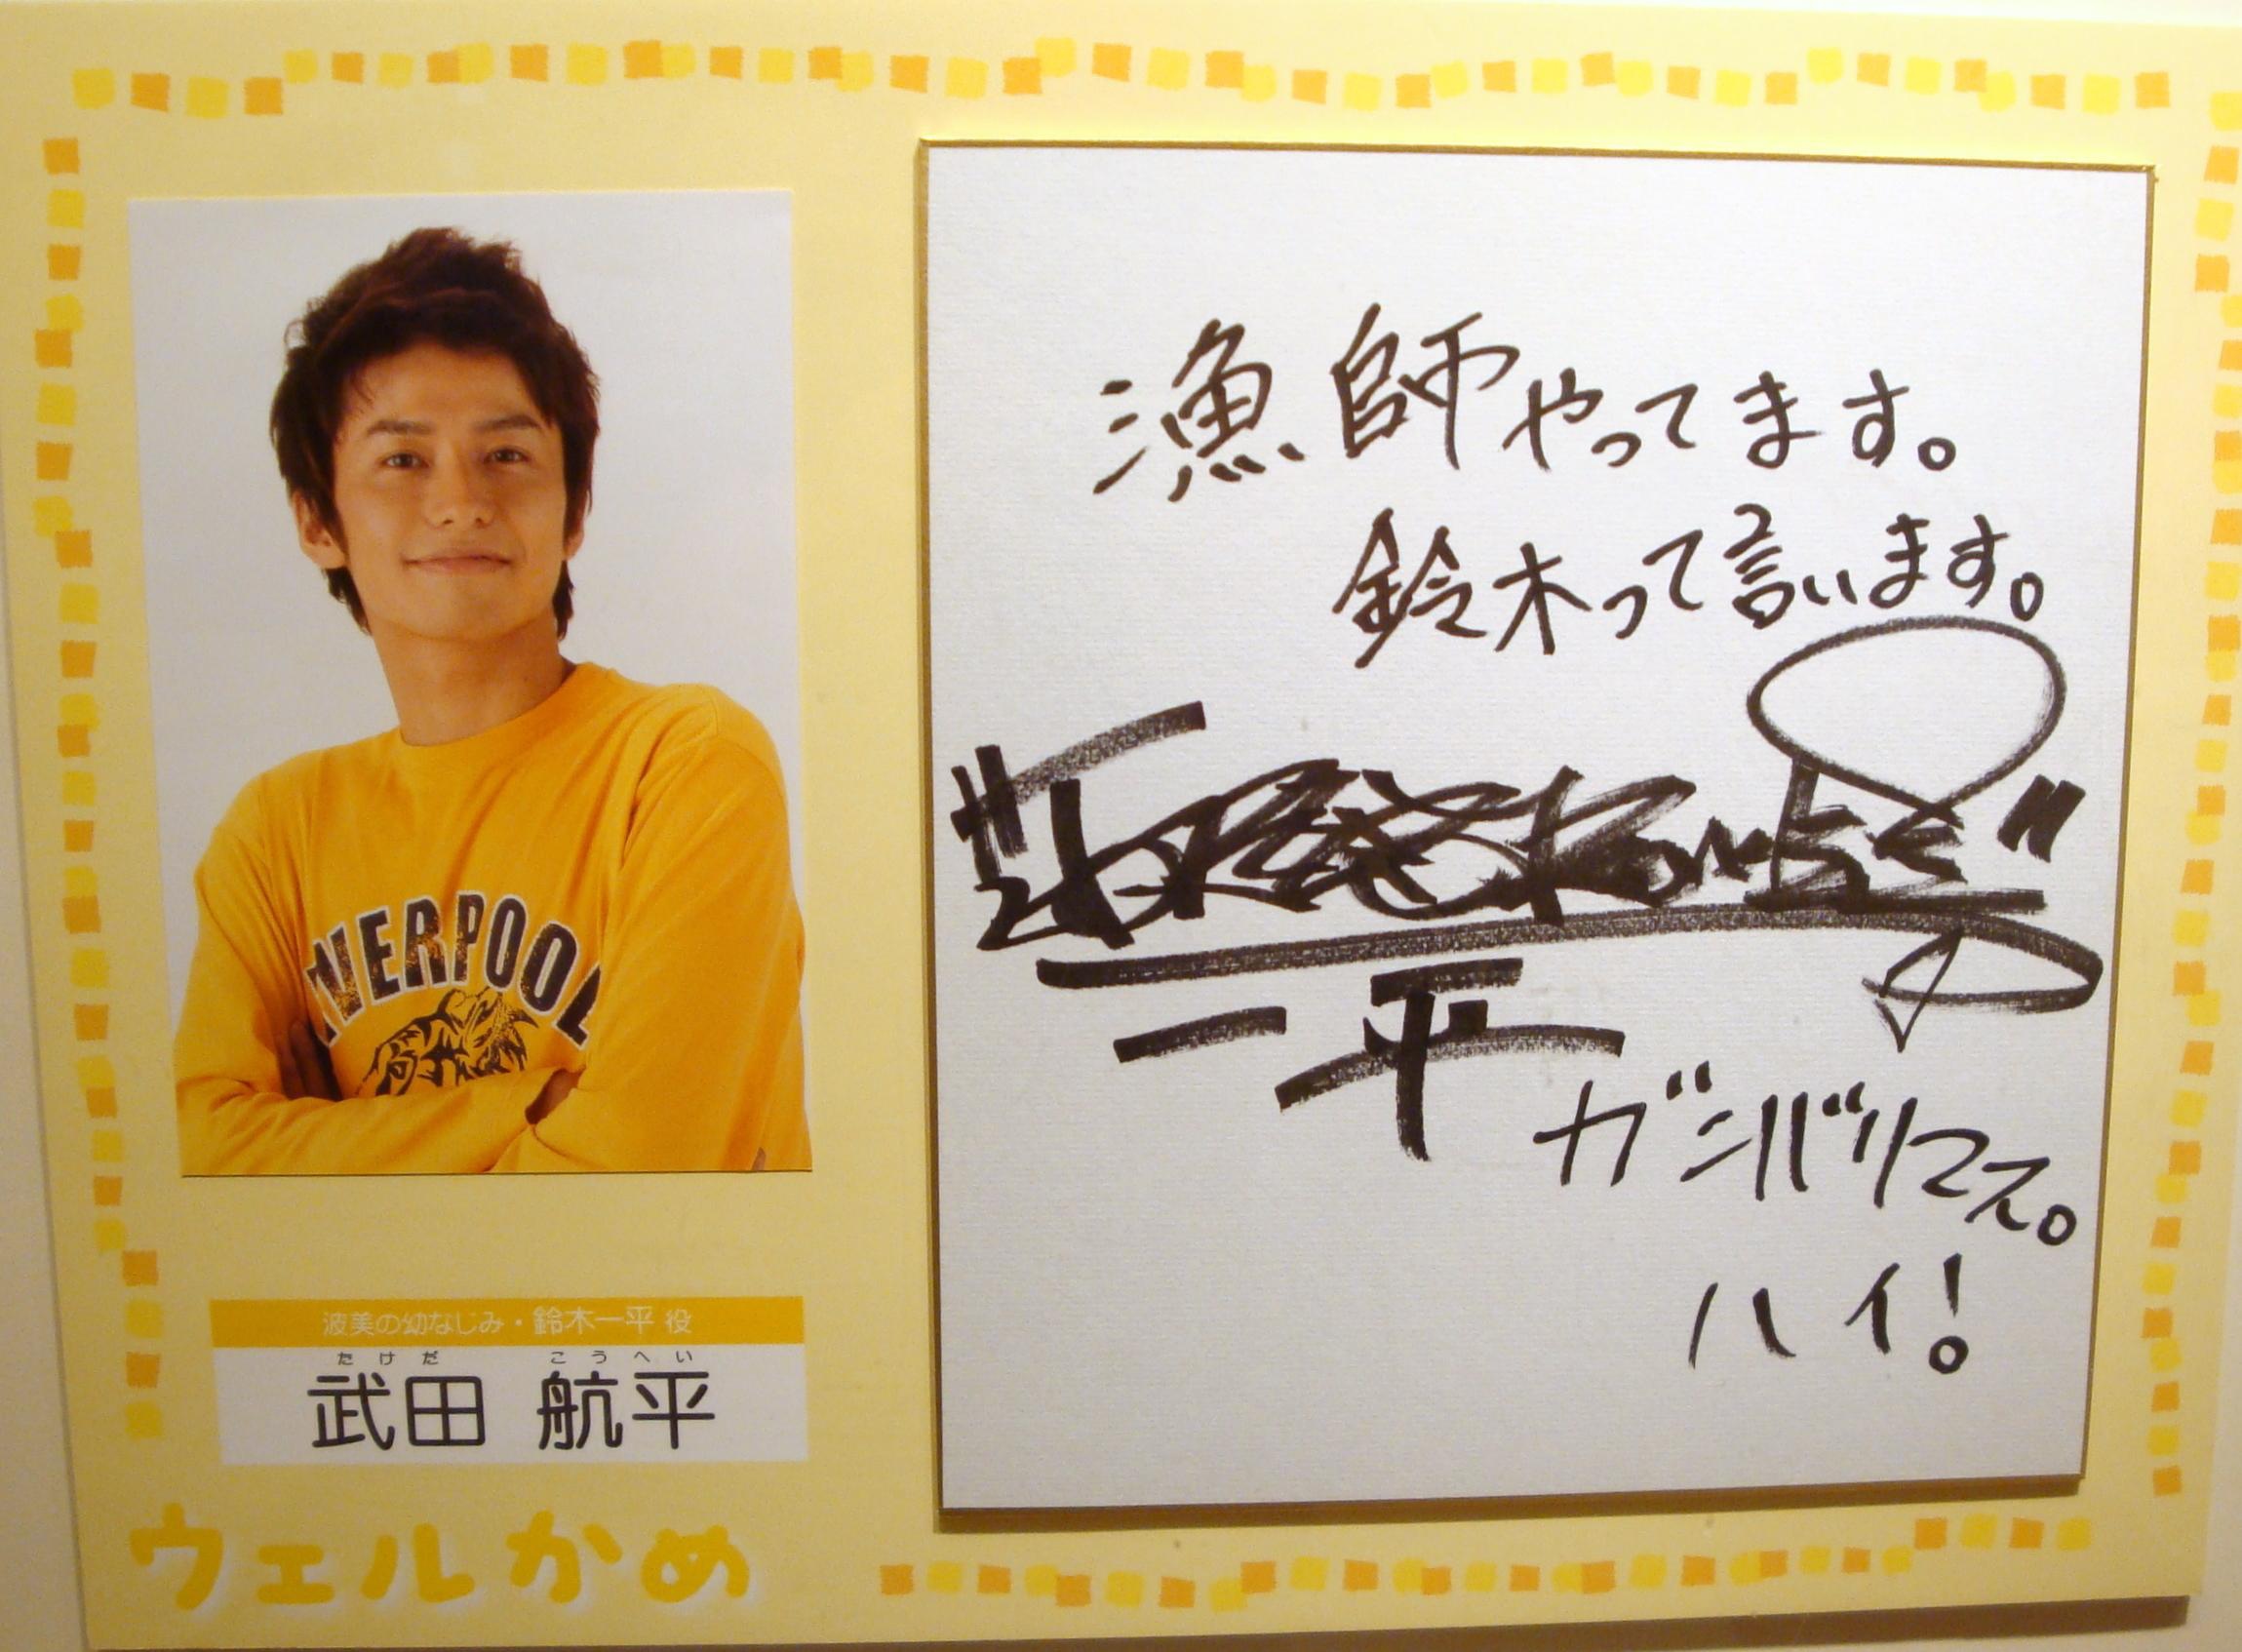 LIVERPOOL
波美の幼なじみ・鈴木一平 役
たけだ こうへい
武田 航平
ウェルかめ
漁師やってます。
鈴木って言います。
一平
ガンバリマス。
ハイ！